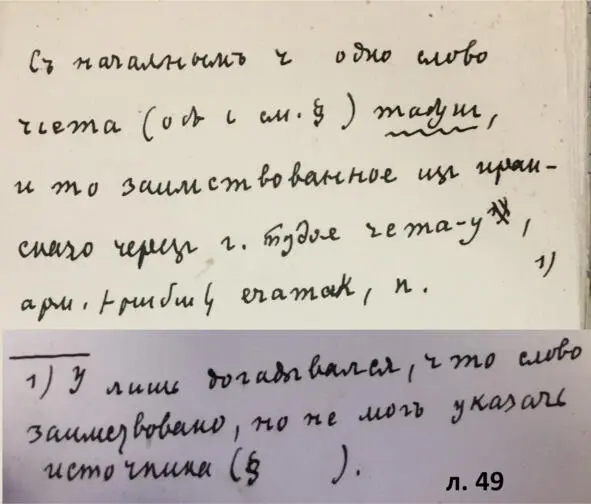 Съ начальнымъ ч одно слово
чіета (объ і см. §) табун,
и то заимствованное из иран-
скаго черезъ г. чета-у,
арм. ечатак, п. 1)
1) У лишь догадывался, что слово
заимствовано, но не могъ указать
источника (§ ).
л. 49